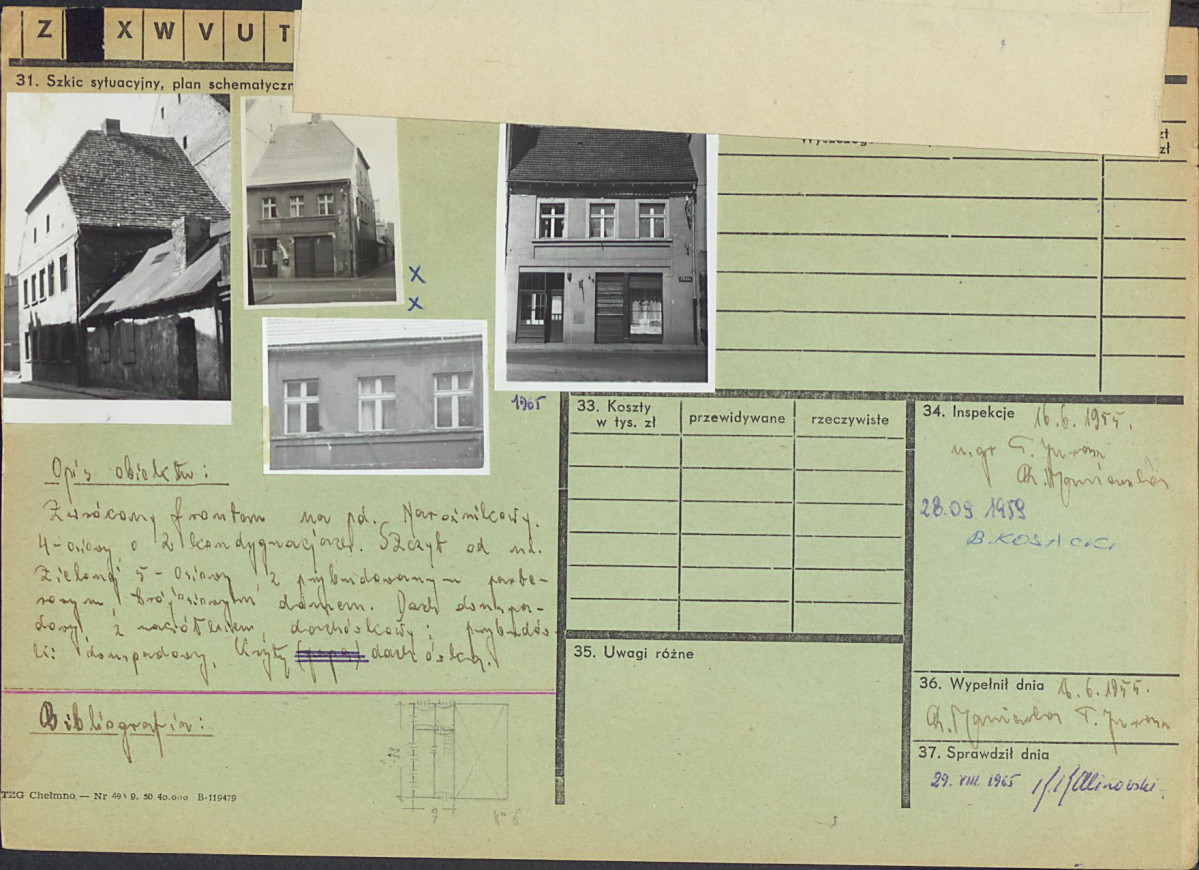 Z X W V U T
31. Szkic sytuacyjny, plan schematyczn
zł
1965
33. Koszty w tys. zł
przewidywane
rzeczywiste
34. Inspekcje 16.6.1955.
mgr T.
28.09 1959
B. KOSACKI
Opis obiektu:
Zwrócony frontem na pd. Narożnikowy.
4-osiowy o 2 kondygnacjach. Szczyt od ul.
Zielonej 5-osiowy z przybudowanym parte-
rowym trójosiowym domem. Dach dwuspa-
dowy, z naczółkiem, dachówkowy; przybudów-
ki: dwuspadowy, kryty (papą) dachówką.
35. Uwagi różne
36. Wypełnił dnia 16.6.1955.
Bibliografia:
37. Sprawdził dnia
29. VIII. 1965 Kalinowski.
TZG Chełmno — Nr 9. 50 40.000 B-119479